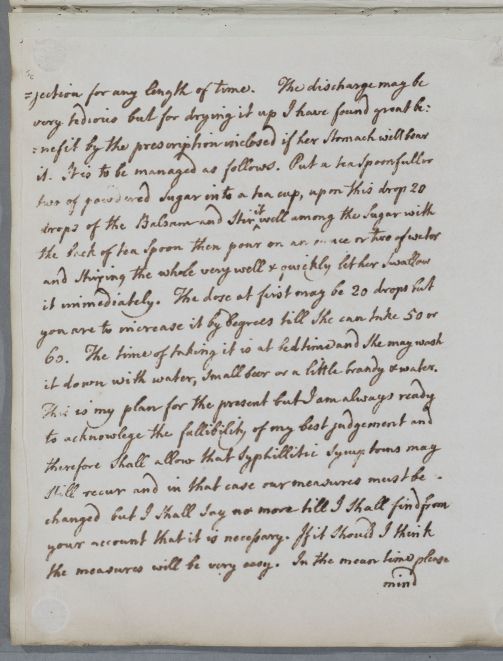 =jection for any length of time. The discharge may be
very tedious but for drying it up I have found great be:
=nefit by the prescription inclosed if her Stomach will bear
it. It is to be managed as follows. Put a teaspoonfull or
two of powdered Sugar into a tea cup, upon this drop 20
drops of the Balsam and Stir it well among the Sugar with
the back of tea Spoon then pour on an ounce or two of water
and Stiring the whole very well & quickly let her Swallow
it immediately. The dose at first may be 20 drops but
you are to increase it by degrees till She can take 50 or
60. The time of taking it is at bedtime and She may wash
it down with water, Small beer or a little brandy & water.
This is my plan for the present but I am always ready
to acknowlege the fallibility of my best judgement and
therefore Shall allow that Syphillitic Symptoms may
Still recur and in that case our measures must be
changed but I Shall Say no more till I Shall find from
your account that it is necessary. If it Should I think
the measures will be very easy. In the mean time please
mind